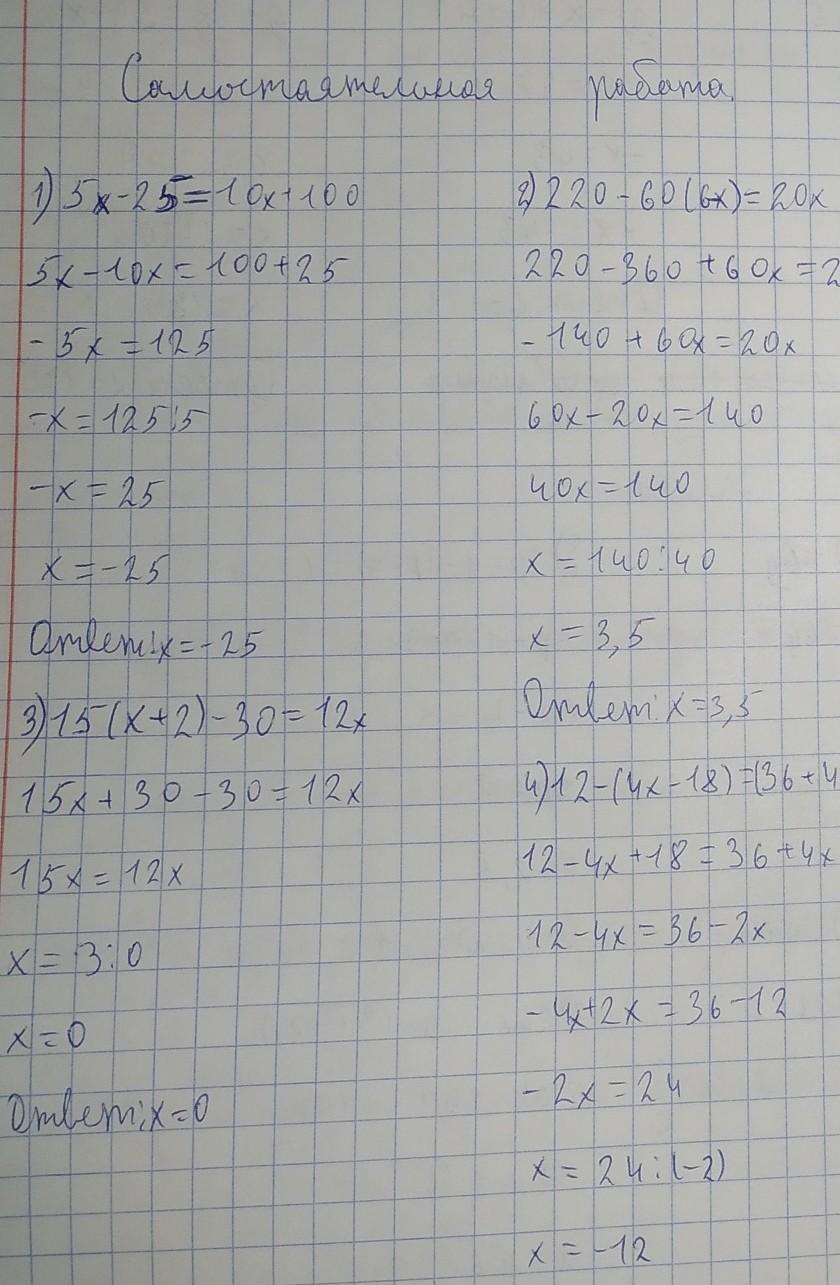 Самостоятельная работа.
1) 5x-25=10x+100
5x-10x=100+25
-5x=125
-x=125:5
-x=25
x=-25
Ответ:x=-25
2) 220-60(6x)=20x
220-360+60x=2
-140+60x=20x
60x-20x=140
40x=140
x=140:40
x=3,5
Ответ:x=3,5
3) 15(x+2)-30=12x
15x+30-30=12x
15x=12x
x=3:0
x=0
Ответ:x=0
4) 12-(4x-18)=(36+4
12-4x+18=36+4x
12-4x=36-2x
-4x+2x=36-12
-2x=24
x=24:(-2)
x=-12